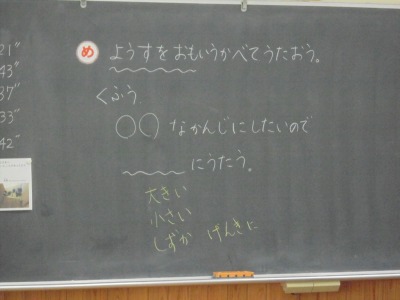 21"
43"
37"
33"
42"
め ようすをおもいうかべてうたおう。
くふう
○○なかんじにしたいので
にうたう。
大きい
小さい
しずか げんきに